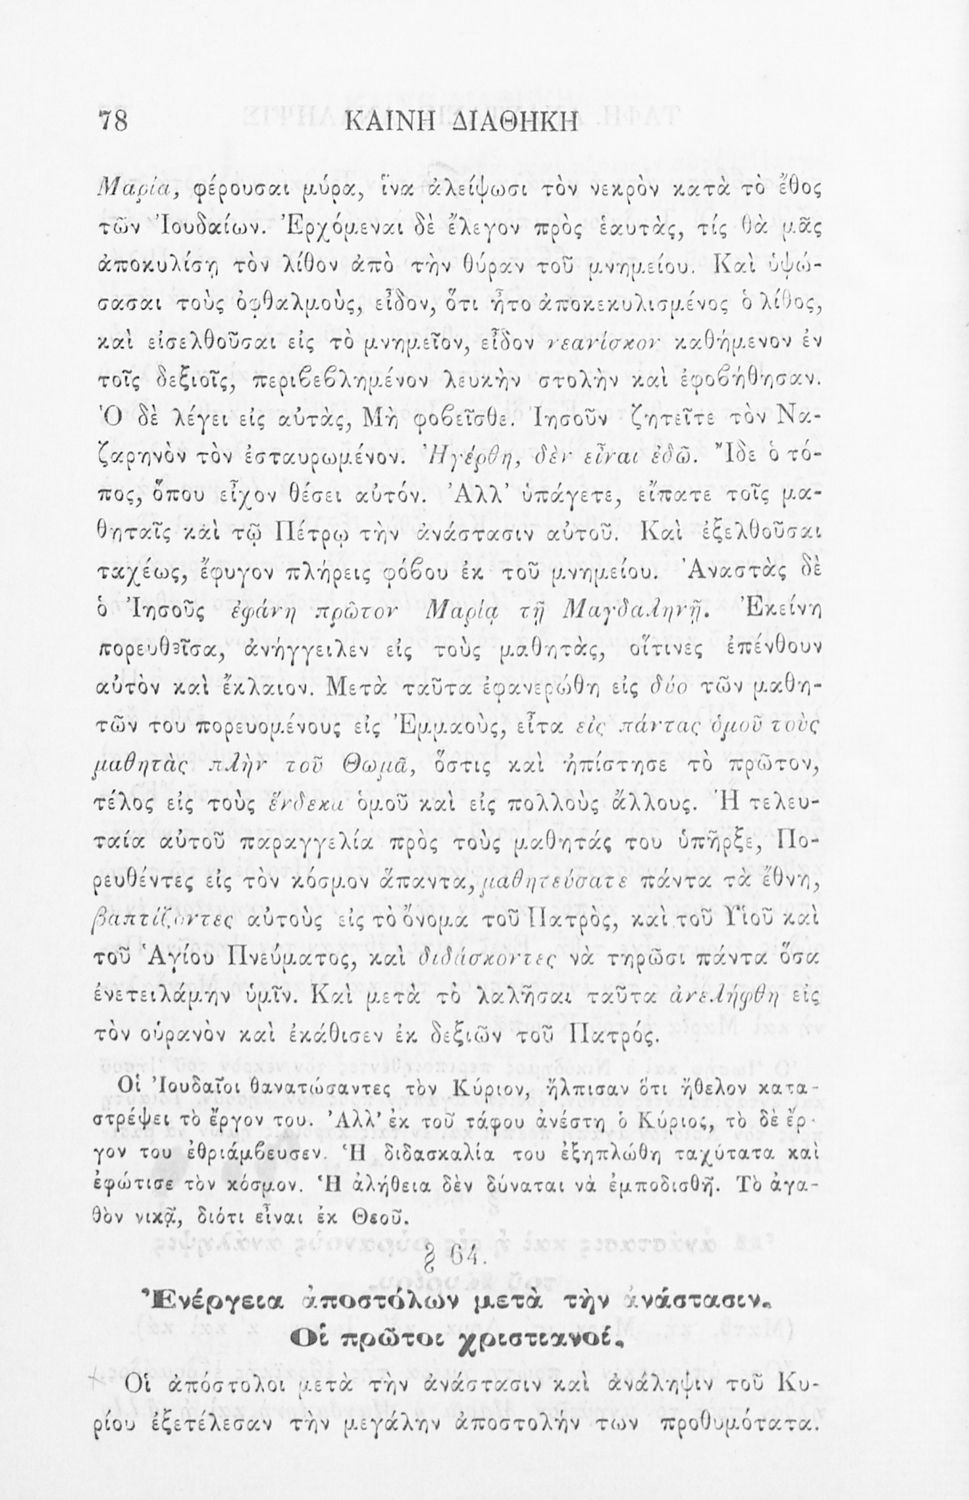 78 ΚΑΙΝΗ ΔΙΑΘΗΚΗ
Μαρία, φέρουσαι μύρα, ἵνα ἀλείψωσι τὸν νεκρὸν κατὰ τὸ ἔθος
τῶν Ἰουδαίων. Ἐρχόμεναι δὲ ἔλεγον πρὸς ἑαυτὰς, τίς θὰ μᾶς
ἀποκυλίσῃ τὸν λίθον ἀπὸ τὴν θύραν τοῦ μνημείου. Καὶ ὑψώ-
σασαι τοὺς ὀφθαλμοὺς, εἶδον, ὅτι ἦτο ἀποκεκυλισμένος ὁ λίθος,
καὶ εἰσελθοῦσαι εἰς τὸ μνημεῖον, εἶδον νεανίσκον καθήμενον ἐν
τοῖς δεξιοῖς, περιβεβλημένον λευκὴν στολὴν καὶ ἐφοβήθησαν.
Ὁ δὲ λέγει εἰς αὐτὰς, Μὴ φοβεῖσθε. Ἰησοῦν ζητεῖτε τὸν Να-
ζαρηνὸν τὸν ἐσταυρωμένον. Ἠγέρθη, δὲν εἶναι ἐδῶ. Ἴδε ὁ τό-
πος, ὅπου εἶχον θέσει αὐτόν. Ἀλλ’ ὑπάγετε, εἴπατε τοῖς μα-
θηταῖς καὶ τῷ Πέτρῳ τὴν ἀνάστασιν αὐτοῦ. Καὶ ἐξελθοῦσαι
ταχέως, ἔφυγον πλήρεις φόβου ἐκ τοῦ μνημείου. Ἀναστὰς δὲ
ὁ Ἰησοῦς ἐφάνη πρῶτον Μαρίᾳ τῇ Μαγδαληνῇ. Ἐκείνη
πορευθεῖσα, ἀνήγγειλεν εἰς τοὺς μαθητὰς, οἵτινες ἐπένθουν
αὐτὸν καὶ ἔκλαιον. Μετὰ ταῦτα ἐφανερώθη εἰς δύο τῶν μαθη-
τῶν του πορευομένους εἰς Ἐμμαοὺς, εἶτα εἰς πάντας ὁμοῦ τοὺς
μαθητὰς πλὴν τοῦ Θωμᾶ, ὅστις καὶ ἠπίστησε τὸ πρῶτον,
τέλος εἰς τοὺς ἕνδεκα ὁμοῦ καὶ εἰς πολλοὺς ἄλλους. Ἡ τελευ-
ταία αὐτοῦ παραγγελία πρὸς τοὺς μαθητάς του ὑπῆρξε, Πο-
ρευθέντες εἰς τὸν κόσμον ἅπαντα, μαθητεύσατε πάντα τὰ ἔθνη,
βαπτίζοντες αὐτοὺς εἰς τὸ ὄνομα τοῦ Πατρὸς, καὶ τοῦ Υἱοῦ καὶ
τοῦ Ἁγίου Πνεύματος, καὶ διδάσκοντες νὰ τηρῶσι πάντα ὅσα
ἐνετειλάμην ὑμῖν. Καὶ μετὰ τὸ λαλῆσαι ταῦτα ἀνελήφθη εἰς
τὸν οὐρανὸν καὶ ἐκάθισεν ἐκ δεξιῶν τοῦ Πατρός.
Οἱ Ἰουδαῖοι θανατώσαντες τὸν Κύριον, ἤλπισαν ὅτι ἤθελον κατα-
στρέψει τὸ ἔργον του. Ἀλλ’ ἐκ τοῦ τάφου ἀνέστη ὁ Κύριος, τὸ δὲ ἔρ-
γον του ἐθριάμβευσεν. Ἡ διδασκαλία του ἐξηπλώθη ταχύτατα καὶ
ἐφώτισε τὸν κόσμον. Ἡ ἀλήθεια δὲν δύναται νὰ ἐμποδισθῇ. Τὸ ἀγα-
θὸν νικᾷ, διότι εἶναι ἐκ Θεοῦ.
§ 64.
Ἐνέργεια ἀποστόλων μετὰ τὴν ἀνάστασιν.
Οἱ πρῶτοι χριστιανοί.
Οἱ ἀπόστολοι μετὰ τὴν ἀνάστασιν καὶ ἀνάληψιν τοῦ Κυ-
ρίου ἐξετέλεσαν τὴν μεγάλην ἀποστολήν των προθυμότατα.